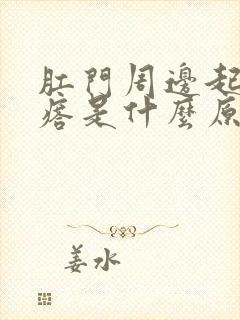 肛門周邊起
痞是什麼原
姜水